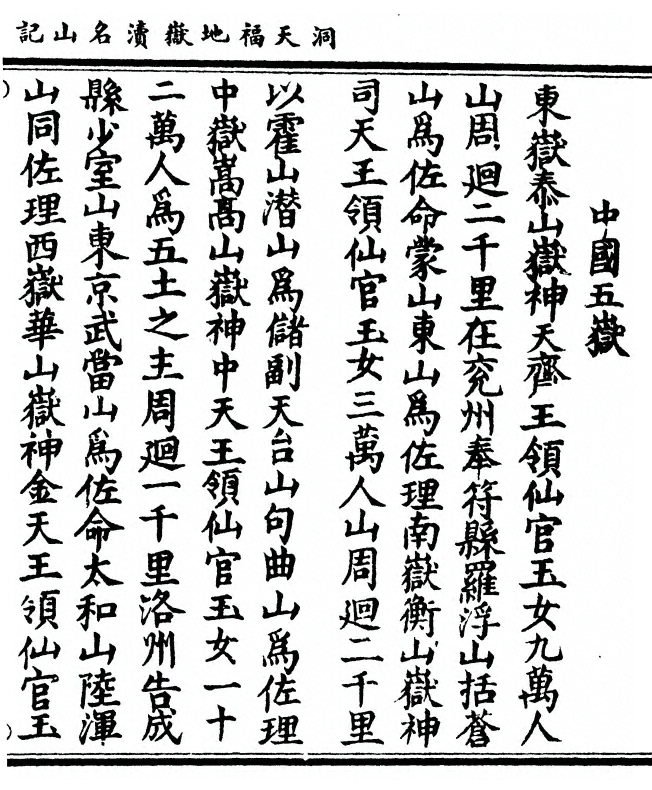 洞天福地嶽瀆名山記
中國五嶽
東嶽泰山嶽神天齊王領仙官玉女九萬人
山周迴二千里在兖州奉符縣羅浮山括蒼
山爲佐命蒙山東山爲佐理南嶽衡山嶽神
司天王領仙官玉女三萬人山周迴二千里
以霍山潜山爲儲副天台山句曲山爲佐理
中嶽嵩髙山嶽神中天王領仙官玉女一十
二萬人爲五土之主周迴一千里洛州告成
縣少室山東京武當山爲佐命太和山陸渾
山同佐理西嶽華山嶽神金天王領仙官玉